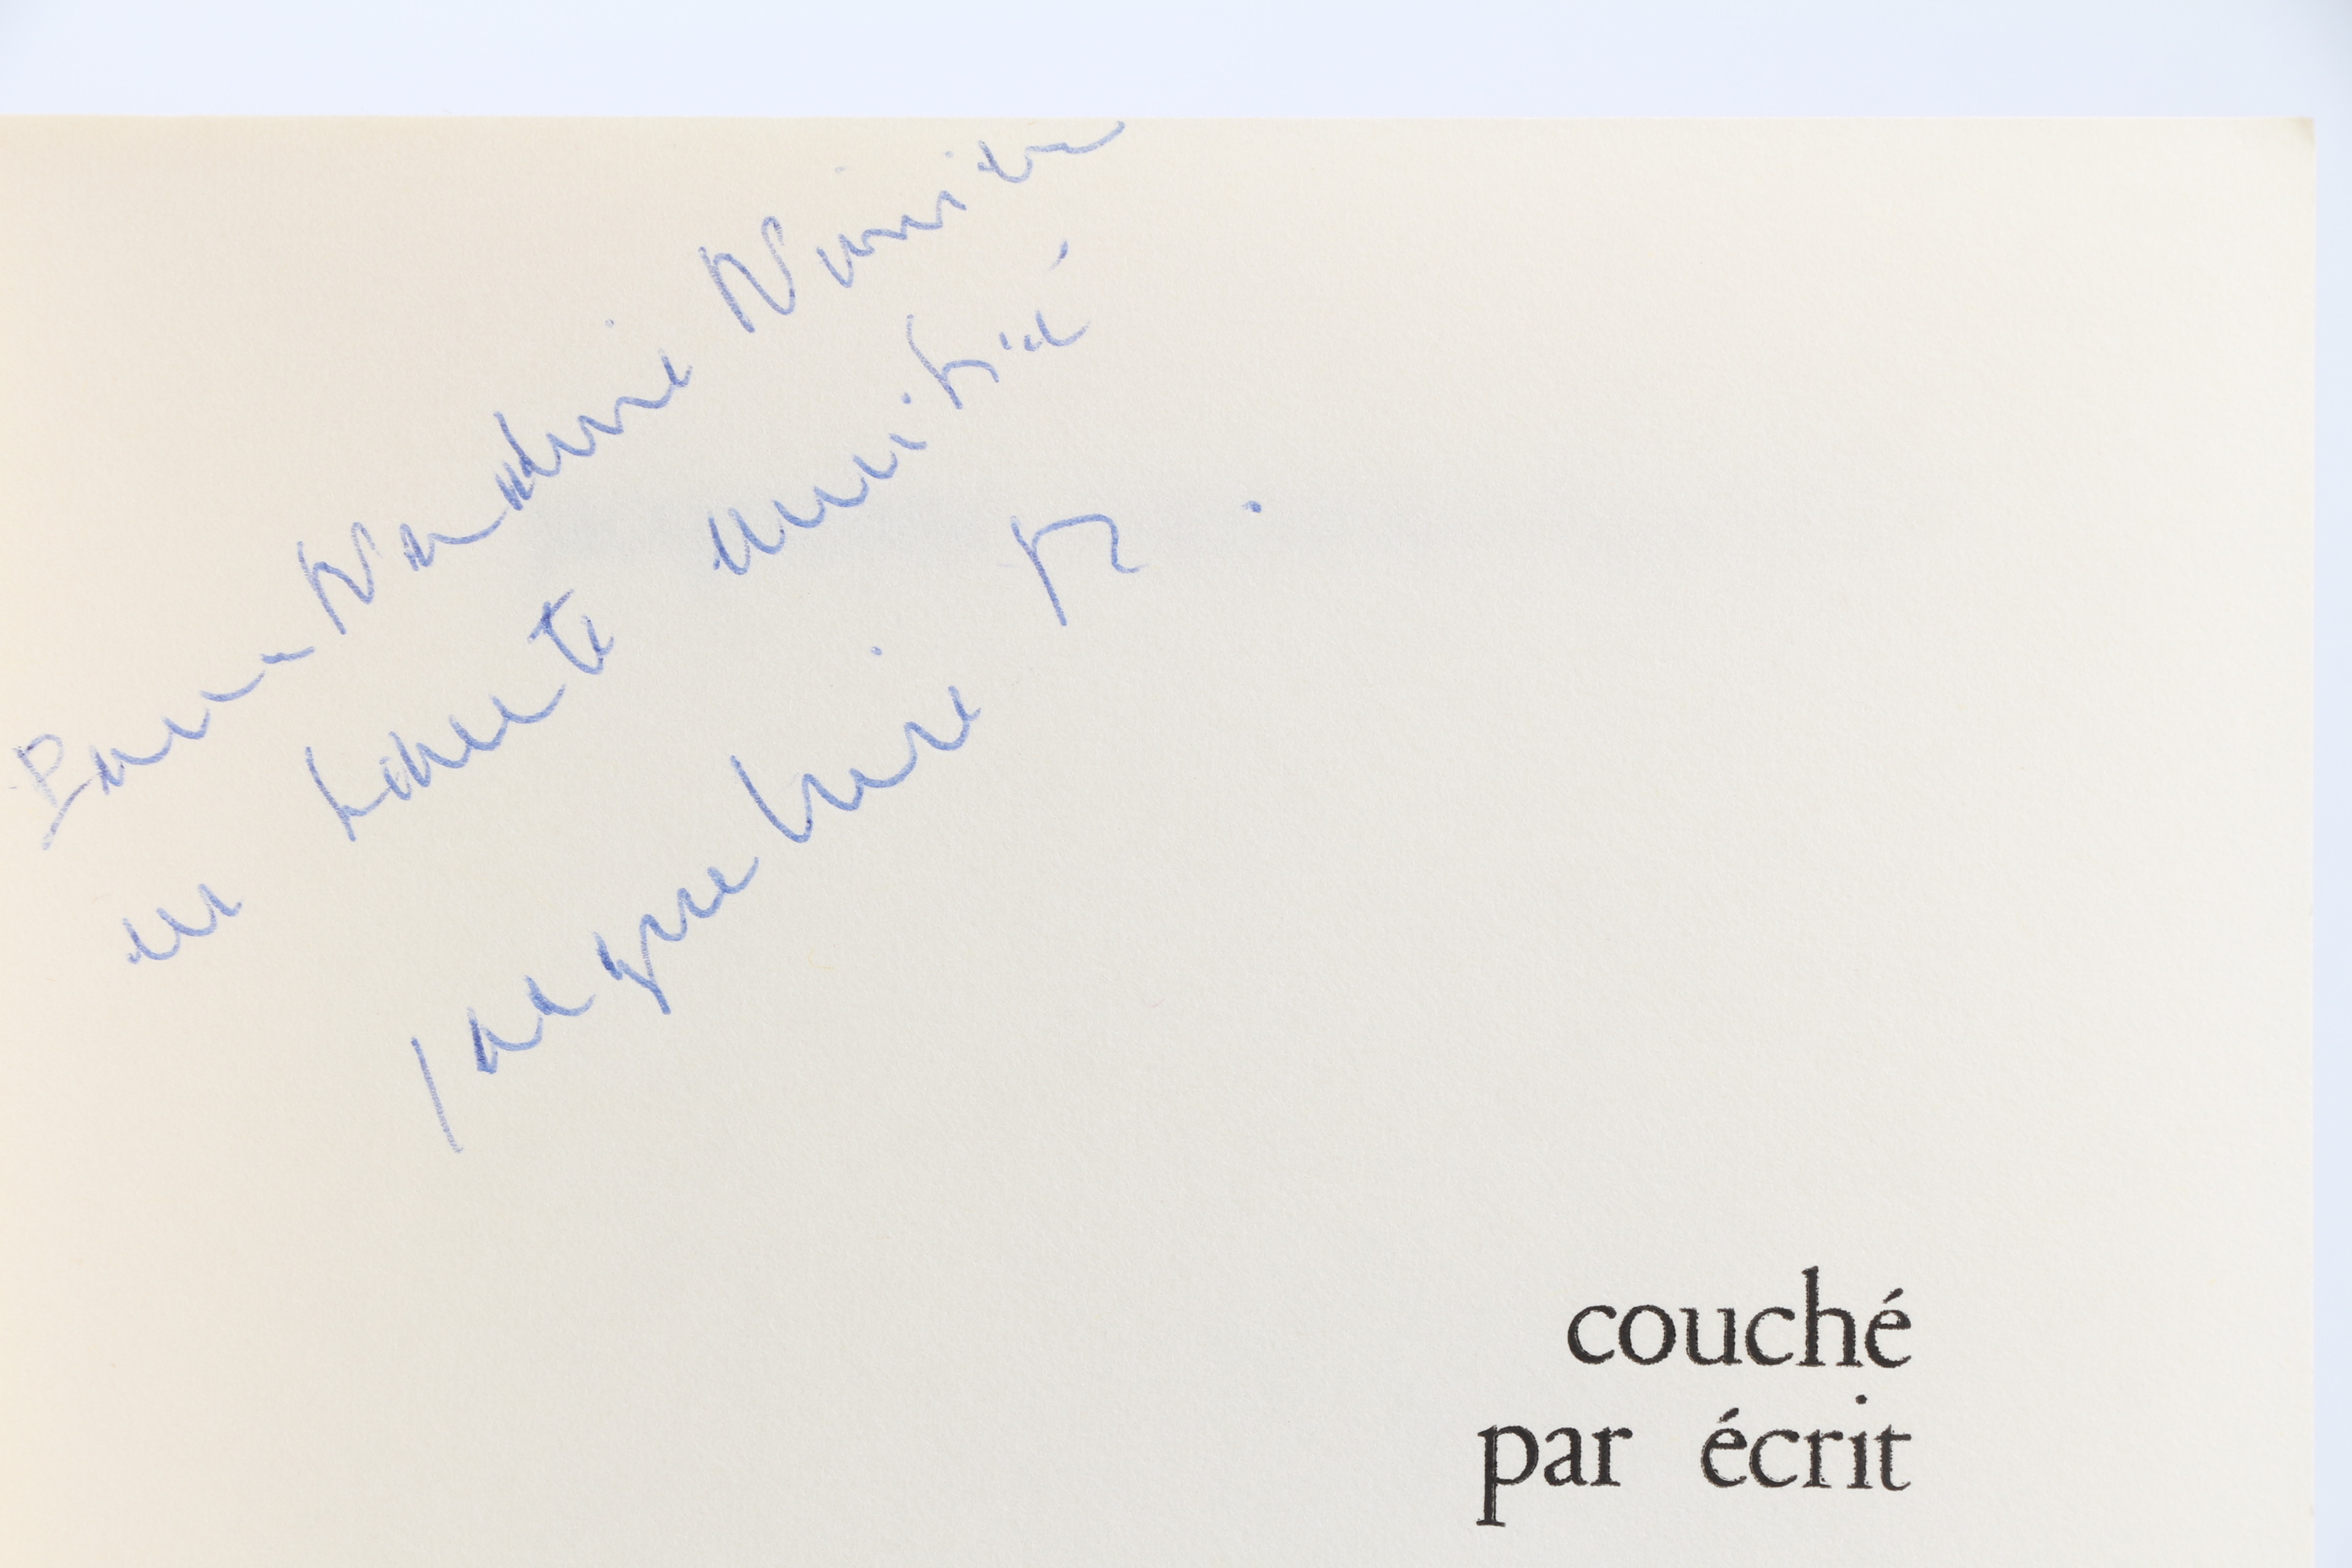 Pour Nadine Nimier
en amitié
Jacqueline R.
couché
par écrit